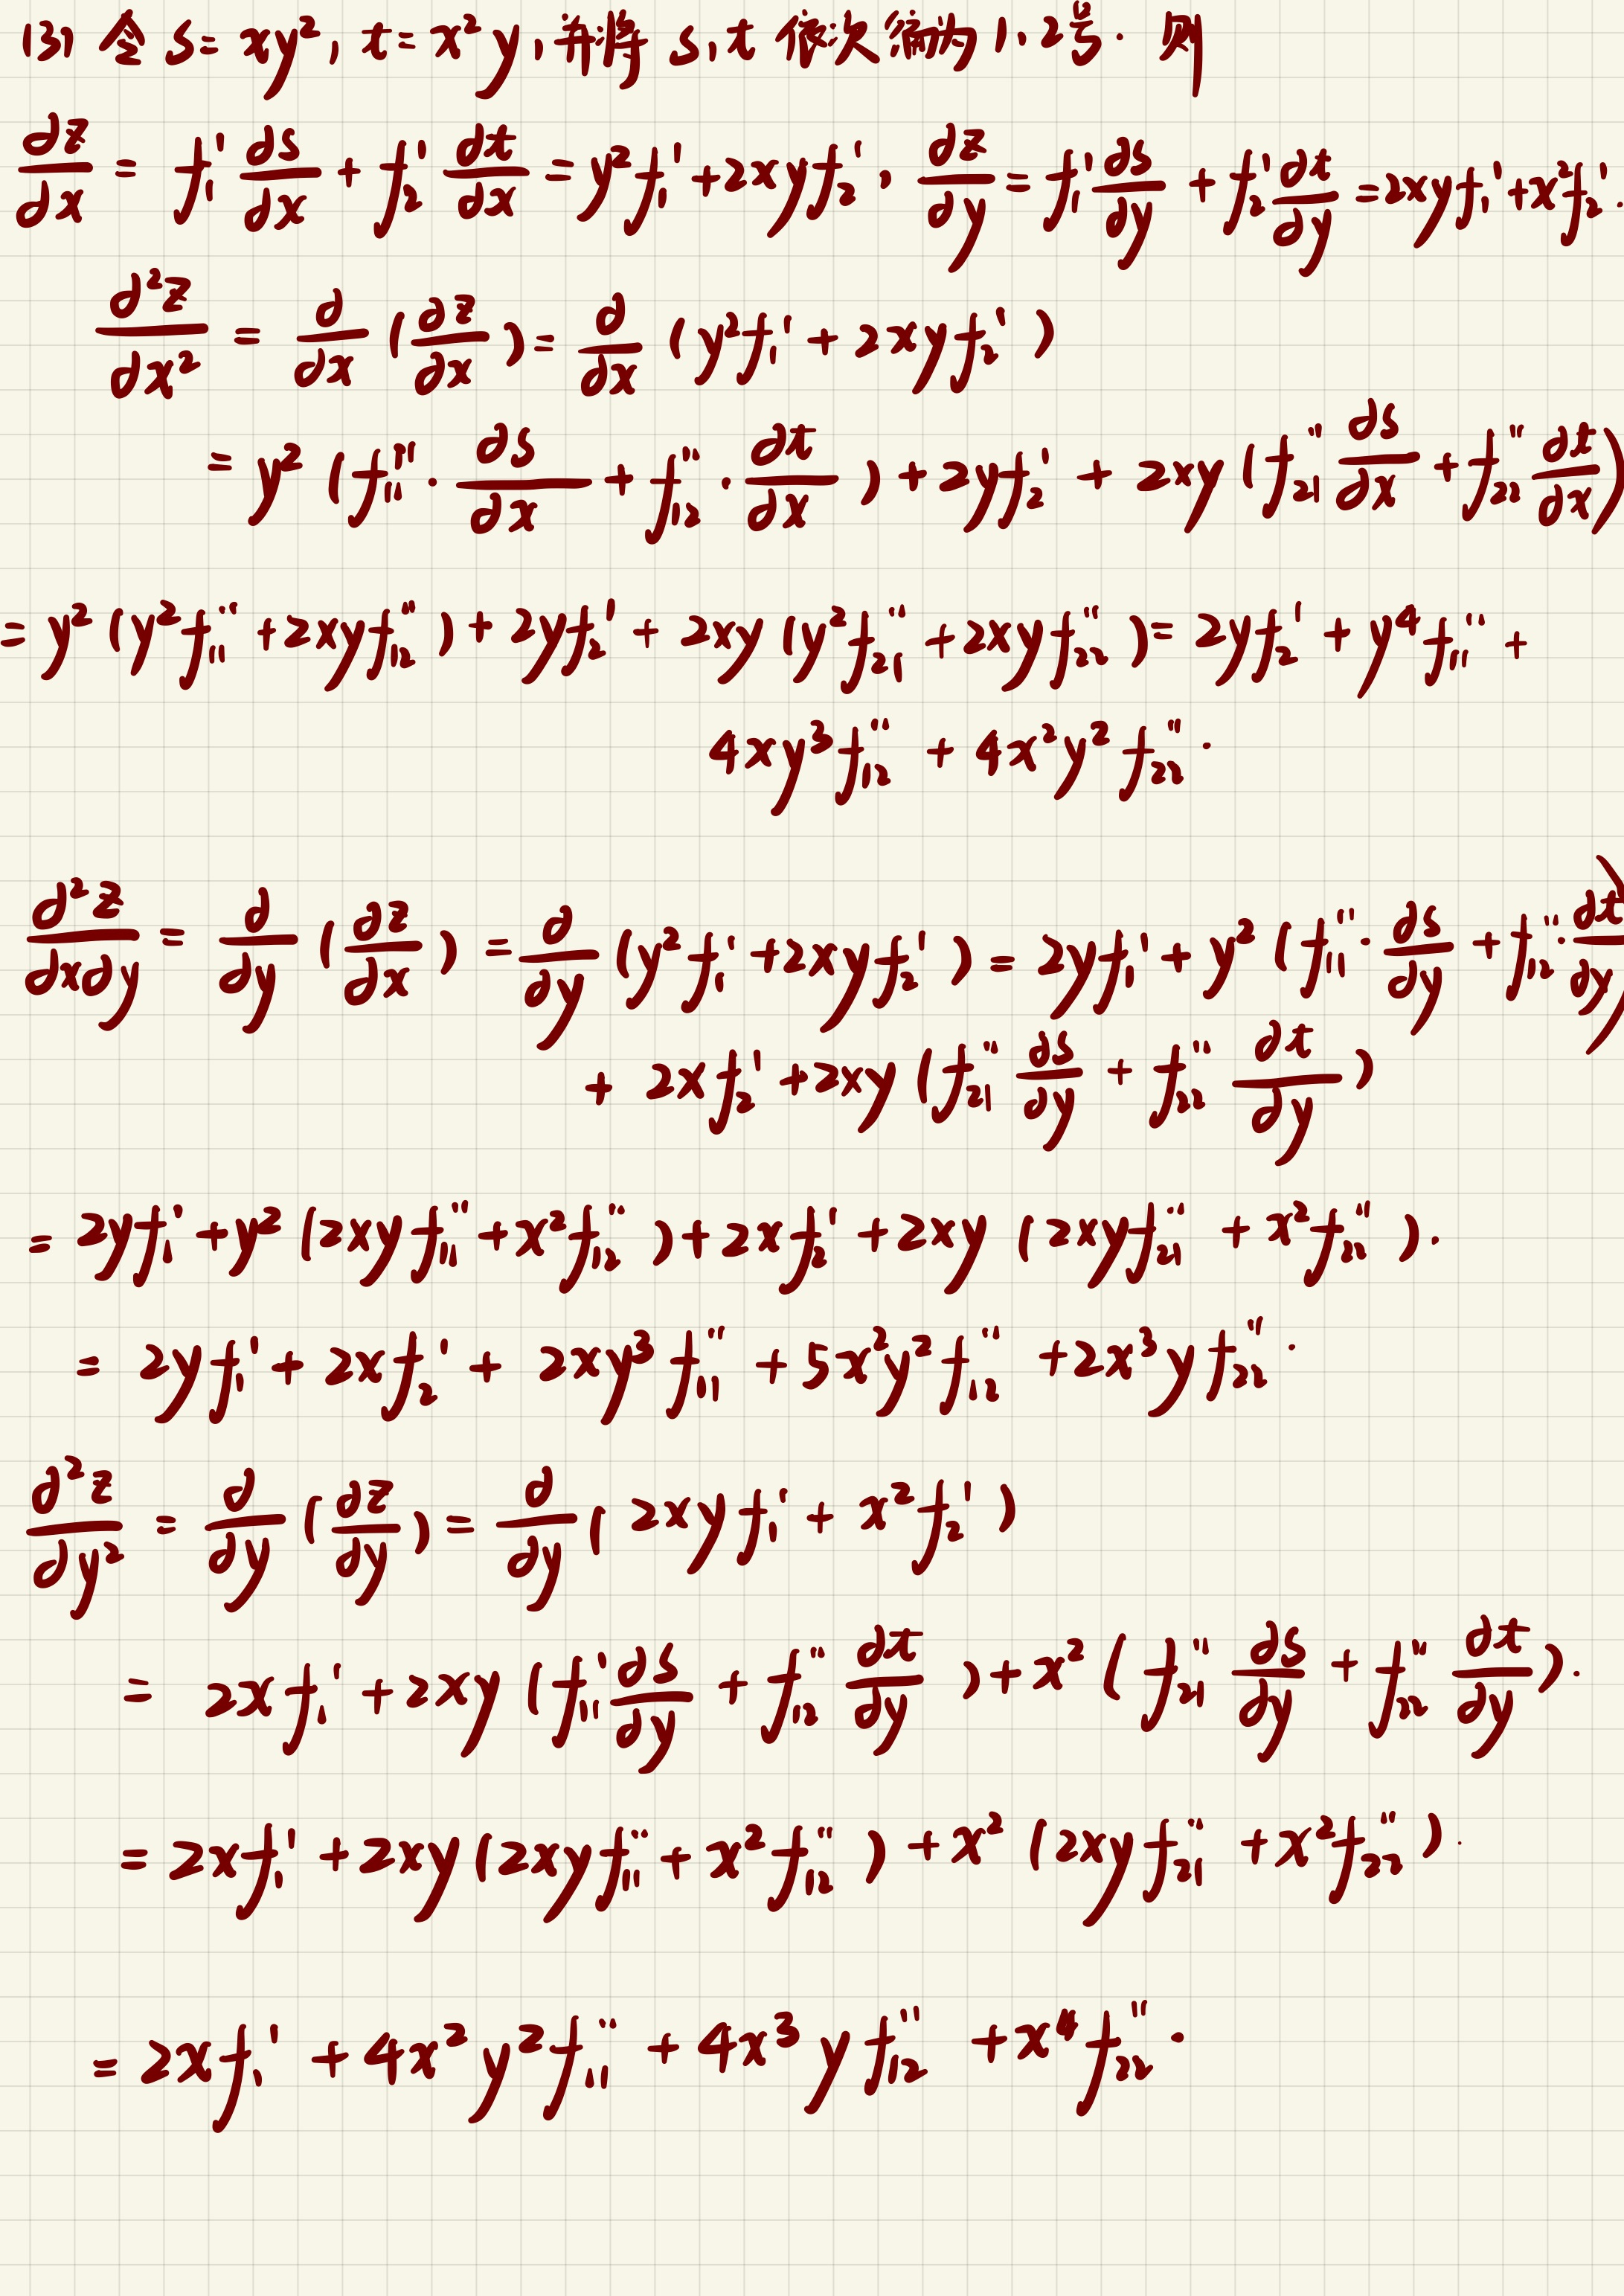 (3) 令 s = xy², t = x²y, 并将 s, t 依次编为 1, 2号. 则
∂z/∂x = f₁' ∂s/∂x + f₂' ∂t/∂x = y²f₁' + 2xyf₂', ∂z/∂y = f₁' ∂s/∂y + f₂' ∂t/∂y = 2xyf₁' + x²f₂'.
∂²z/∂x² = ∂/∂x (∂z/∂x) = ∂/∂x (y²f₁' + 2xyf₂')
= y² (f₁₁'' · ∂s/∂x + f₁₂'' · ∂t/∂x) + 2yf₂' + 2xy (f₂₁'' ∂s/∂x + f₂₂'' ∂t/∂x)
= y² (y²f₁₁'' + 2xyf₁₂'') + 2yf₂' + 2xy (y²f₂₁'' + 2xyf₂₂'') = 2yf₂' + y⁴f₁₁'' +
4xy³f₁₂'' + 4x²y²f₂₂''.
∂²z/∂x∂y = ∂/∂y (∂z/∂x) = ∂/∂y (y²f₁' + 2xyf₂') = 2yf₁' + y² (f₁₁'' · ∂s/∂y + f₁₂'' · ∂t/∂y)
+ 2xf₂' + 2xy (f₂₁'' ∂s/∂y + f₂₂'' ∂t/∂y)
= 2yf₁' + y² (2xyf₁₁'' + x²f₁₂'') + 2xf₂' + 2xy (2xyf₂₁'' + x²f₂₂'').
= 2yf₁' + 2xf₂' + 2xy³f₁₁'' + 5x²y²f₁₂'' + 2x³yf₂₂''.
∂²z/∂y² = ∂/∂y (∂z/∂y) = ∂/∂y (2xyf₁' + x²f₂')
= 2xf₁' + 2xy (f₁₁' ∂s/∂y + f₁₂'' ∂t/∂y) + x² (f₂₁'' ∂s/∂y + f₂₂'' ∂t/∂y).
= 2xf₁' + 2xy (2xyf₁₁'' + x²f₁₂'') + x² (2xyf₂₁'' + x²f₂₂'').
= 2xf₁' + 4x²y²f₁₁'' + 4x³yf₁₂'' + x⁴f₂₂''.